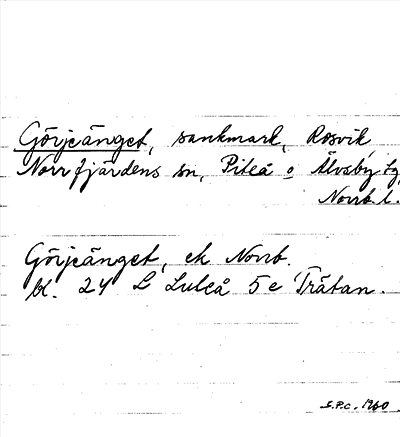 Görjeänget, sankmark, Rosvik,
Norrfjärdens sn, Piteå o Älvsby tg,
Norrb. l.
Görjeänget, ek Norrb.
bl. 24 L Luleå 5 e Trätan.
S.P.C. 1960